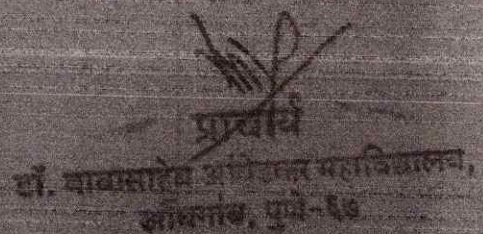 प्राचार्य
डॉ. बाबासाहेब आंबेडकर महाविद्यालय,
औंधगांव, पुणे-६७